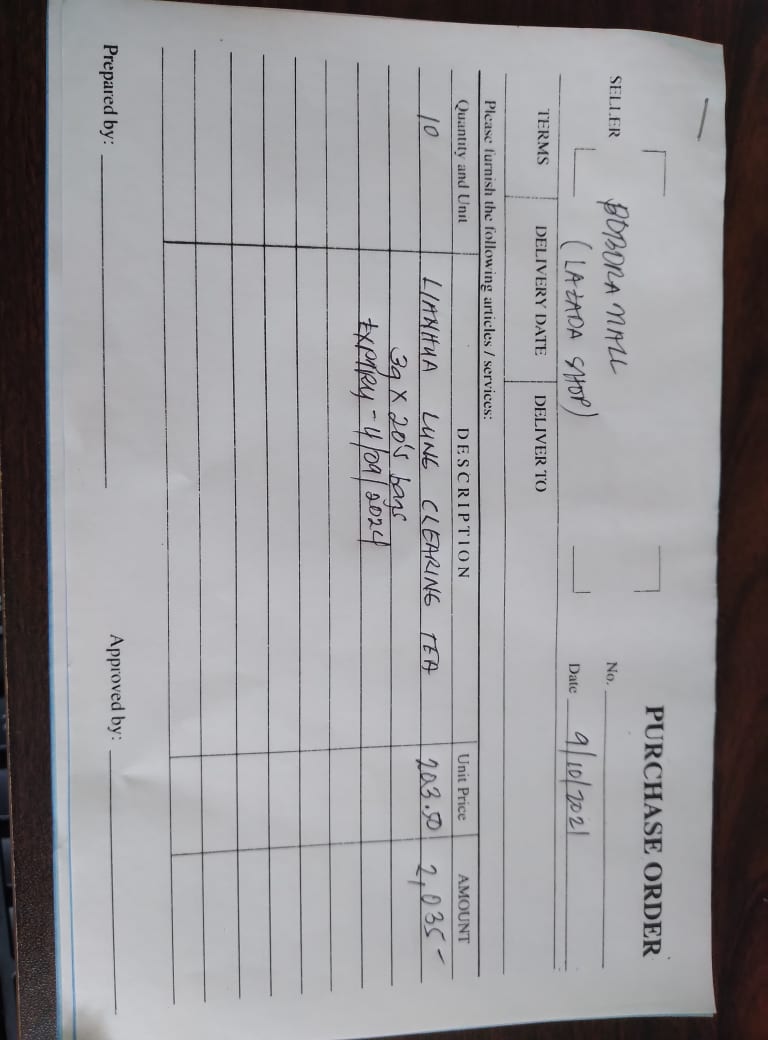 PURCHASE ORDER
SELLER
BOBORA MALL
(LAZADA SHOP)
No.
Date 9/10/2021
TERMS DELIVERY DATE DELIVER TO
Please furnish the following articles / services:
Quantity and Unit DESCRIPTION Unit Price AMOUNT
10 LIANHUA LUNG CLEARING TEA 203.50 2,035-
3g x 20's bags
EXPIRY - 4/09/2024
Prepared by: Approved by: